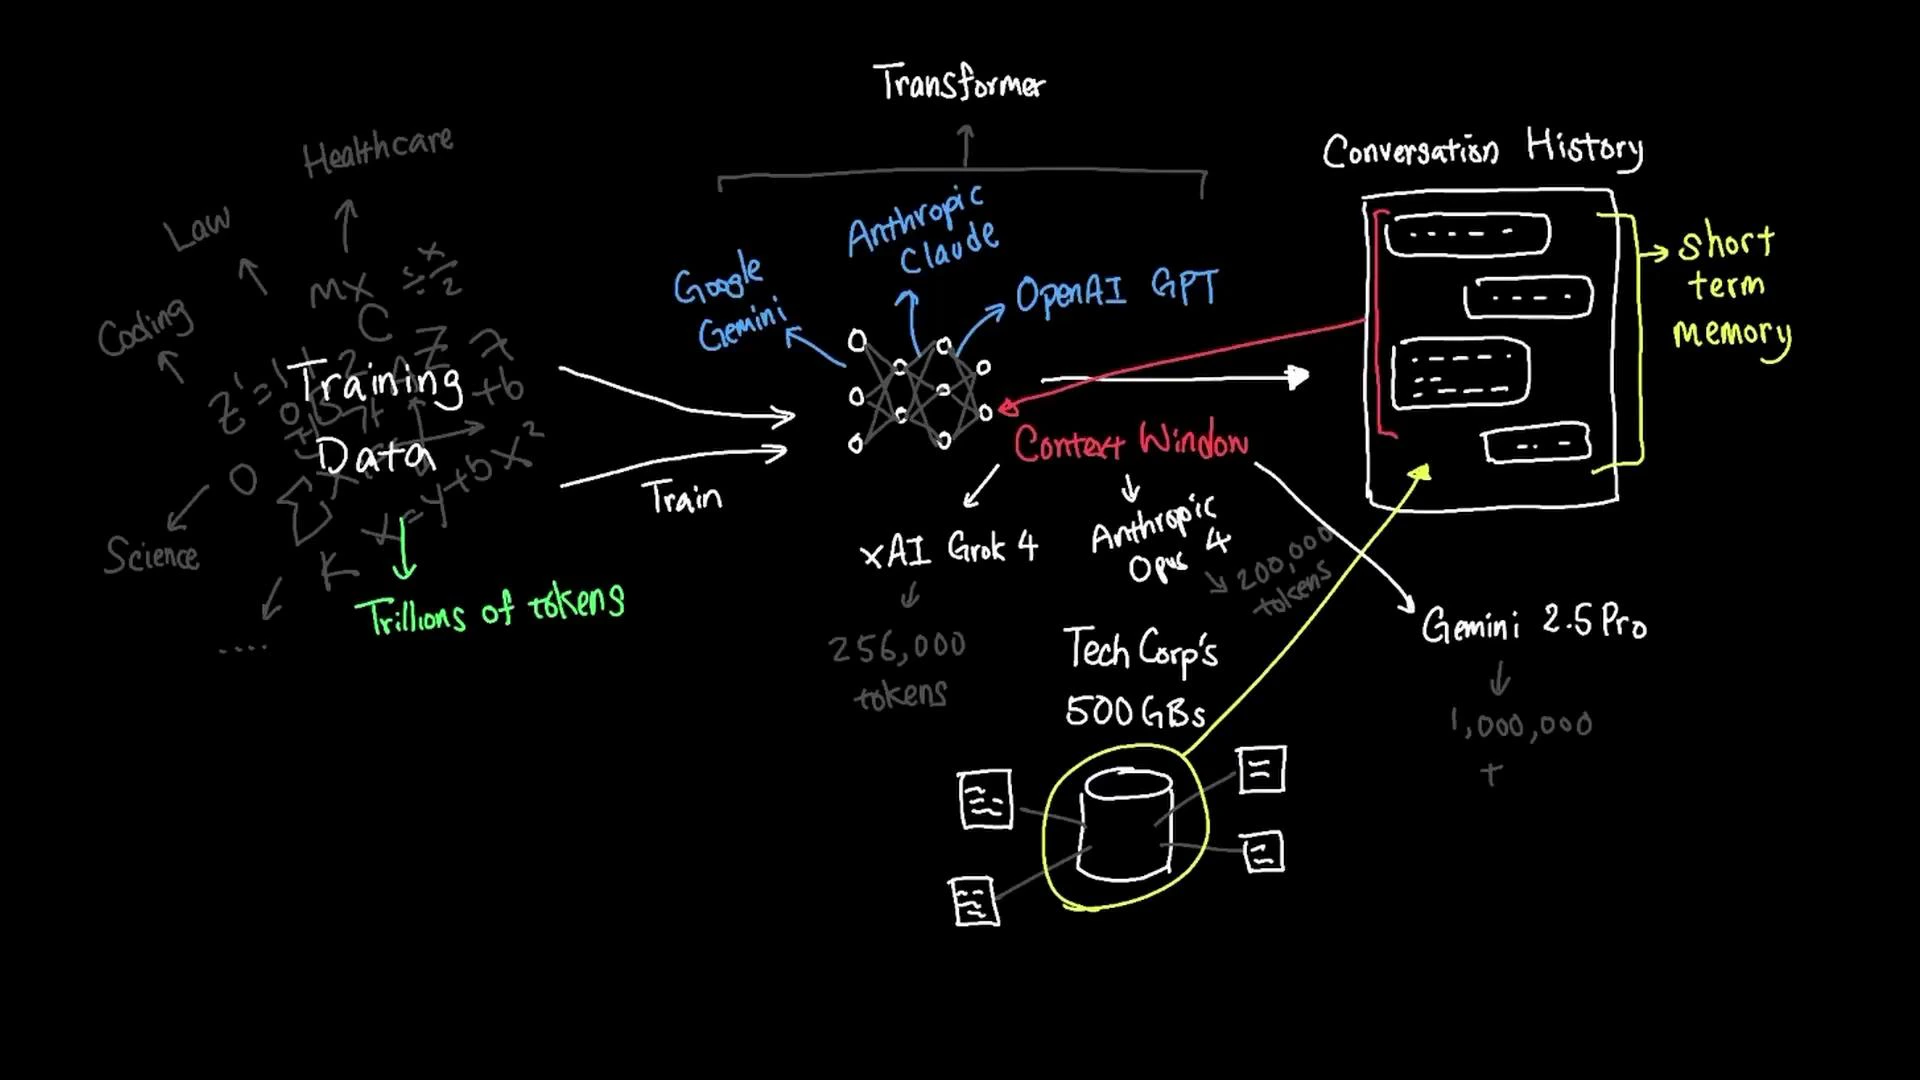 Transformer
Healthcare
Law
Coding
Training
Data
Science
....
Trillions of tokens
Train
Google
Gemini
Anthropic
Claude
OpenAI GPT
Context Window
xAI Grok 4
256,000
tokens
Anthropic
Opus 4
200,000
tokens
Gemini 2.5 Pro
1,000,000
+
Conversation History
short
term
memory
Tech Corp's
500GBs